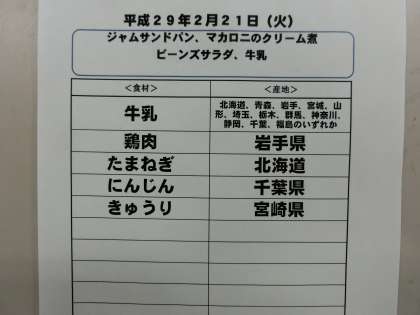 平成29年2月21日（火）
ジャムサンドパン、マカロニのクリーム煮
ビーンズサラダ、牛乳
＜食材＞ ＜産地＞
牛乳 北海道、青森、岩手、宮城、山
形、埼玉、栃木、群馬、神奈川、
静岡、千葉、福島のいずれか
鶏肉 岩手県
たまねぎ 北海道
にんじん 千葉県
きゅうり 宮崎県